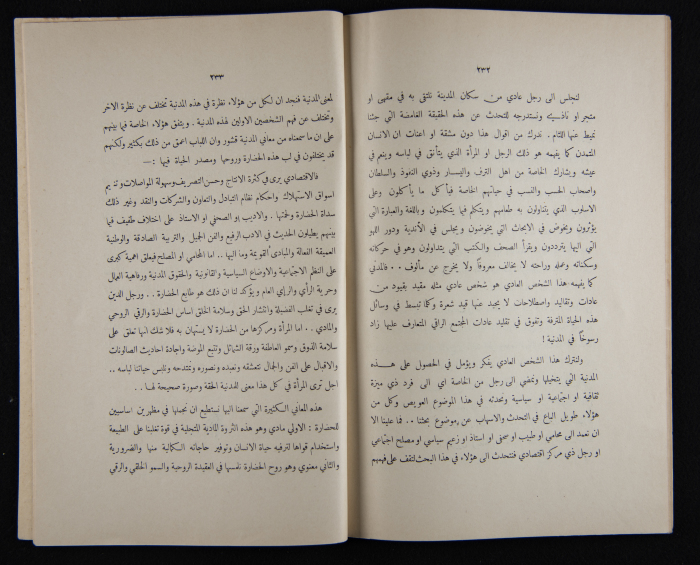 ٢٣٢
لنجلس الى رجل عادي من سكان المدينة نلتقي به في مقهى او
متجر او نادٍ سيه ونستدرجه للتحدث عن هذه الحقيقة الغامضة التي جئنا
نميط عنها اللثام . ندرك من اقوال هذا دون مشقة او اعنات ان الانسان
المتمدن كما يفهمه هو ذلك الرجل او المرأة الذي يتأنق في لباسه وينعم في
عيشه ويشارك الخاصة من اهل الترف واليسار وذوي النفوذ والسلطان
واصحاب الحسب والنسب في حياتهم الخاصة فيأكل ما يأكلون وعلى
الاسلوب الذي يتناولون به طعامهم ويتكلم فيما يتكلمون وباللغة والعبارة التي
يؤثرون ويخوض في الابحاث التي يخوضون ويجلس في الأندية ودور اللهو
التي اليها يترددون ويقرأ الصحف والكتب التي يتداولون وهو في حركاته
وسكناته وعمله وراحته لا يخالف معروفاً ولا يخرج عن مألوف . . فالمدني
كما يفهمه هذا الشخص العادي هو شخص عادي مثله مقيد بقيود من
عادات وتقاليد واصطلاحات لا يحيد عنها قيد شعرة وكلما تبسط في وسائل
هذه الحياة المترفة وتفوق في تقليد عادات المجتمع الراقي المتعارف عليها زاد
رسوخاً في المدنية !
ولنترك هذا الشخص العادي يفكر ويؤمل في الحصول على هــذه
المدنية التي يتخيلها ونمضي الى رجل من الخاصة اي الى فرد ذي ميزة
ثقافية او اجتماعية او سياسية ونحدثه في هذا الموضوع العويص وكل من
هؤلاء طويل الباع في التحدث والاسهاب عن موضوع بحثنا . . فما علينا الا
ان نعمد الى محامي او طبيب او صحفي او استاذ او زعيم سياسي او مصلح اجتماعي
او رجل ذي مركز اقتصادي فنتحدث الى هؤلاء في هذا البحث لنقف على فهمهم
٢٣٣
لمعنى المدنية فنجد ان لكل من هؤلاء نظرة في هذه المدنية تختلف عن نظرة الاخر
وتختلف عن فهم الشخصين الاولين لهذه المدنية . ويتفق هؤلاء الخاصة فيما بينهم
على ان ما سمعناه من معاني المدنية قشور وان اللباب اعمق من ذلك بكثير ولكنهم
قد يختلفون في لب هذه الحضارة وروحها ومصدر الحياة فيها :—
فالاقتصادي يرى في كثرة الانتاج وحسن التصريف وسهولة المواصلات
اسواق الاستهلاك واحكام نظام التبادل والتعاون والشركات والنقد وغير ذلك
سداة الحضارة ولحمتها . والاديب او الصحفي او الاستاذ على اختلاف طفيف فيما
بينهم يطيلون الحديث في الادب الرفيع والفن الجميل والتربية الصادقة والوطنية
العميقة الفعالة والمبادئ القويمة وما اليها . . اما المحامي او المصلح فيعلق اهمية كبرى
على النظم الاجتماعية والاوضاع السياسية والقانونية والحقوق المدنية ورفاهية العمال
وحرية الرأي والرأي العام ويؤكد لنا ان ذلك هو طابع الحضارة . . ورجل الدين
يرى في تغلب الفضيلة وانتشار الحق وسلامة الخلق اساس الحضارة والرقي الروحي
والمادي . . اما المرأة ومركزها من الحضارة لا يستهان به فلا شك انها تعلق على
سلامة الذوق وسمو العاطفة ورقة الشمائل وتتبع الموضة واجادة احاديث الصالونات
والاقبال على الفن والجمال نتعشقه ونعبده ونصوره ونمتدحه ونلبس حياتنا لباسه . .
اجل ترى المرأة في كل هذا معنى للمدنية الحقة وصورة صحيحة لها . .
هذه المعاني الكثيرة التي سمعنا اليها نستطيع ان نجملها في مظهرين اساسيين
للحضارة : الاولي مادي وهو هذه الثروة المادية المتجلية في قوة تغلبنا على الطبيعة
واستخدام قواها لترفيه حياة الانسان وتوفير حاجاته الكمالية منها والضرورية
والثاني معنوي وهو روح الحضارة نفسها في العقيدة الروحية والسمو الخلقي والرقي